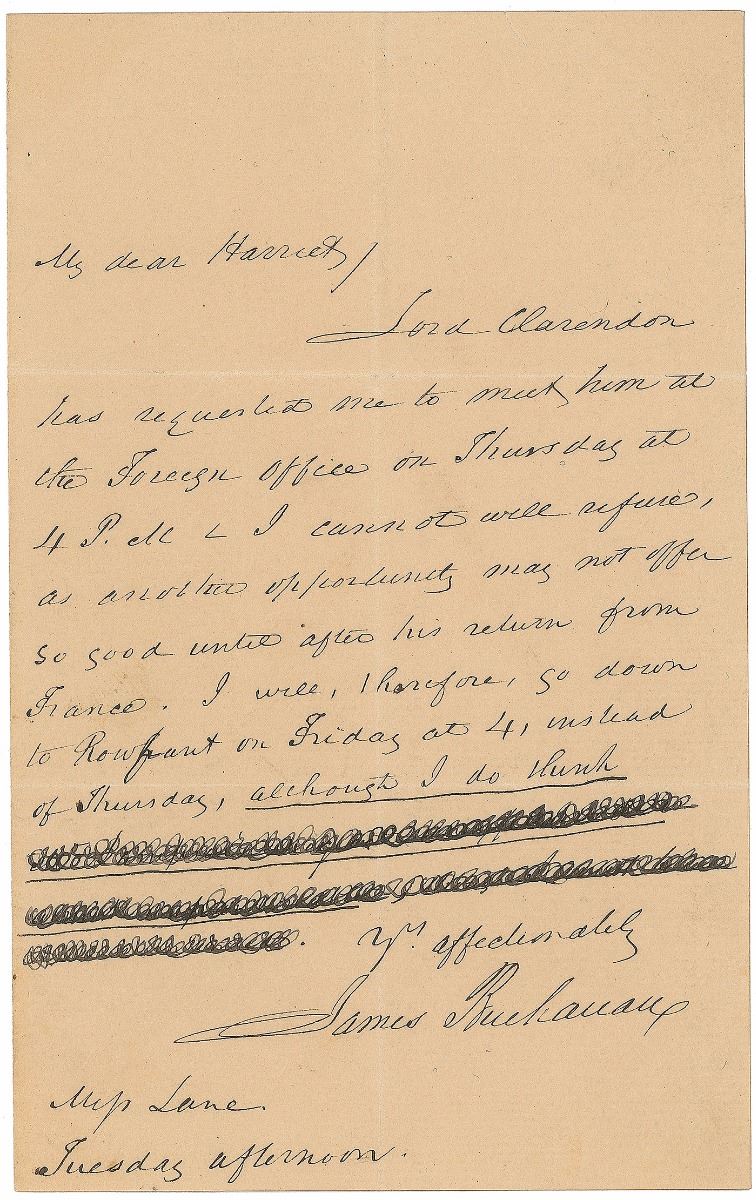 My dear Harriet,
Lord Clarendon
has requested me to meet him at
the Foreign Office on Thursday at
4 P. M & I cannot well refuse,
as another opportunity may not offer
so good until after his return from
France. I will, therefore, go down
to Rowfant on Friday at 4, instead
of Thursday, although I do think
Yrs. affectionately
James Buchanan
Miss Lane.
Tuesday afternoon.